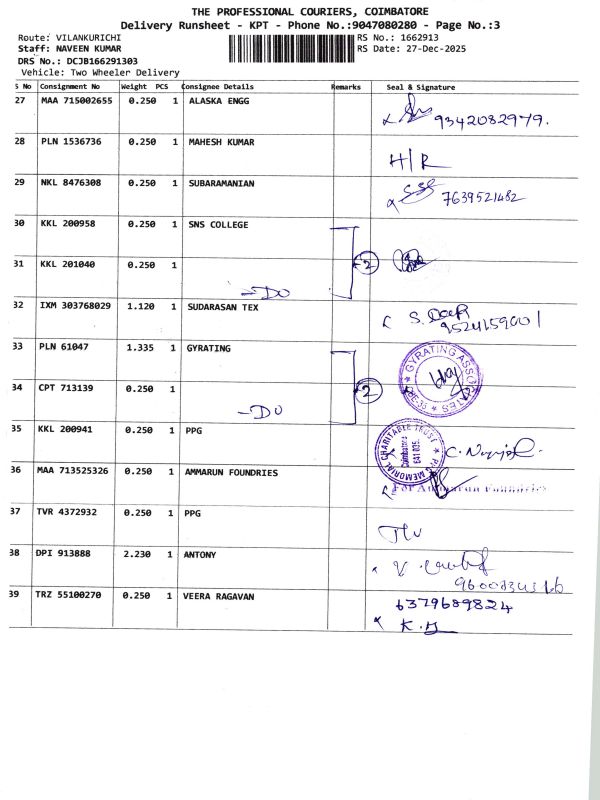 THE PROFESSIONAL COURIERS, COIMBATORE
Delivery Runsheet - KPT - Phone No.:9047080280 - Page No.:3
Route: VILANKURICHI RS No.: 1662913
Staff: NAVEEN KUMAR RS Date: 27-Dec-2025
DRS No.: DCJB166291303
Vehicle: Two Wheeler Delivery
S No Consignment No Weight PCS Consignee Details Remarks Seal & Signature
27 MAA 715002655 0.250 1 ALASKA ENGG 9342082979.
28 PLN 1536736 0.250 1 MAHESH KUMAR H/R
29 NKL 8476308 0.250 1 SUBARAMANIAN 7639521482
30 KKL 200958 0.250 1 SNS COLLEGE
31 KKL 201040 0.250 1 -DO 2
32 IXM 303768029 1.120 1 SUDARASAN TEX S.
33 PLN 61047 1.335 1 GYRATING GYRATING ASSOCIATES
34 CPT 713139 0.250 1 -DO 2
35 KKL 200941 0.250 1 PPG PPG MEMORIAL CHARITABLE TRUST Coimbatore 641 035. C.
36 MAA 713525326 0.250 1 AMMARUN FOUNDRIES For Ammarun Foundries
37 TVR 4372932 0.250 1 PPG
38 DPI 913888 2.230 1 ANTONY V.
39 TRZ 55100270 0.250 1 VEERA RAGAVAN 6379689824
K.